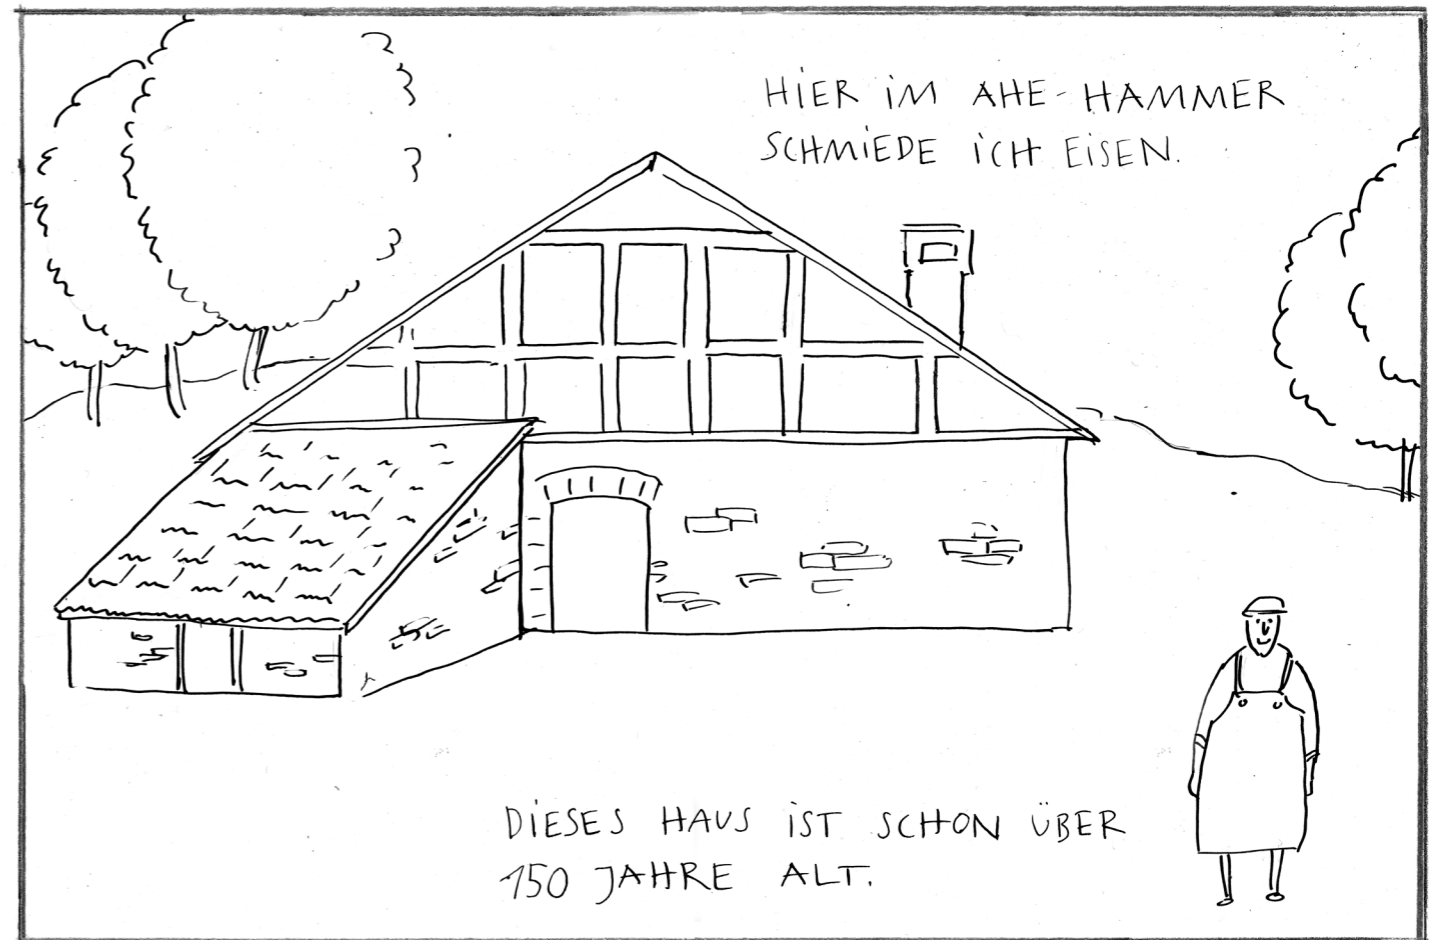 HiER iM AHE-HAMMER
SCHMiEDE iCH EiSEN.
DiESES HAUS iST SCHON ÜBER
150 JAHRE ALT.